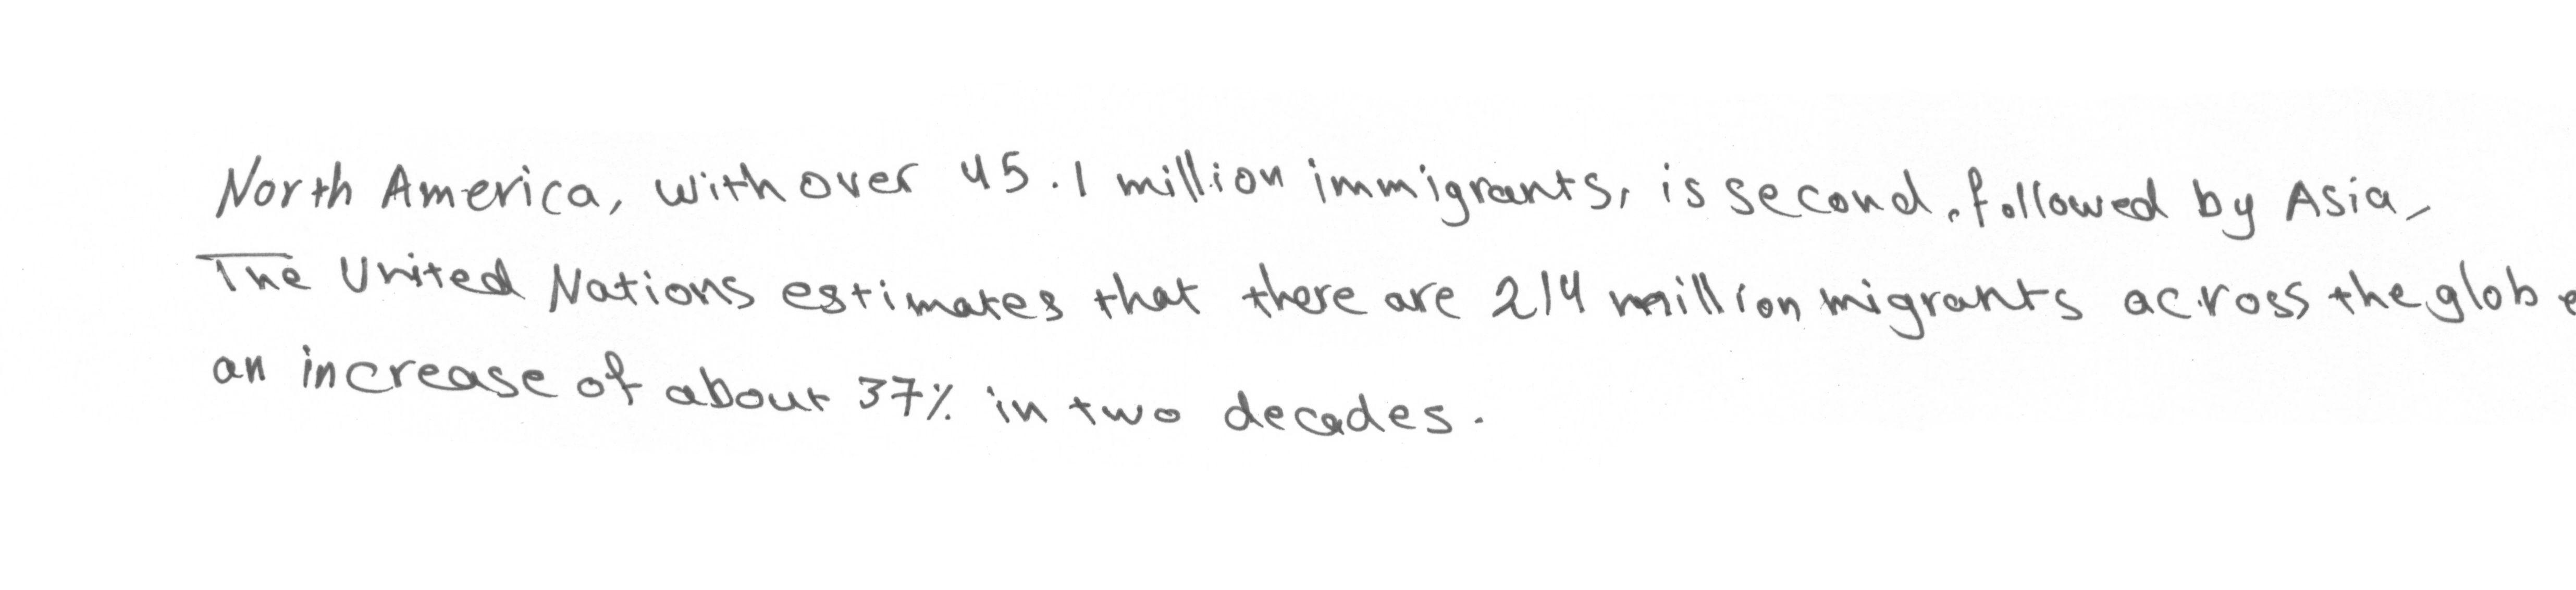 North America, with over 45.1 million immigrants, is second, followed by Asia.
The United Nations estimates that there are 214 million migrants across the globe
an increase of about 37% in two decades.